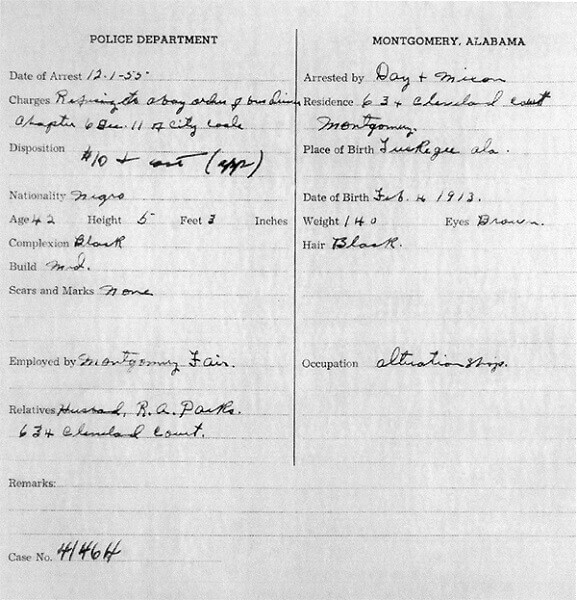 POLICE DEPARTMENT
MONTGOMERY, ALABAMA
Date of Arrest 12-1-55
Arrested by Day & Mixon
Charges Refusing to obay orders of bus driver
Residence 634 Cleveland Court
Chapter 6 Sec. 11 of city code
Montgomery.
Disposition $10 & cost (app)
Place of Birth Tuskegee Ala.
Nationality Negro
Date of Birth Feb. 4 1913.
Age 42 Height 5 Feet 3 Inches
Weight 140 Eyes Brown.
Complexion Black
Hair Black.
Build Med.
Scars and Marks None
Employed by Montgomery Fair.
Occupation alteration shop.
Relatives Husband, R.A. Parks.
634 Cleveland Court.
Remarks:
Case No. 41464